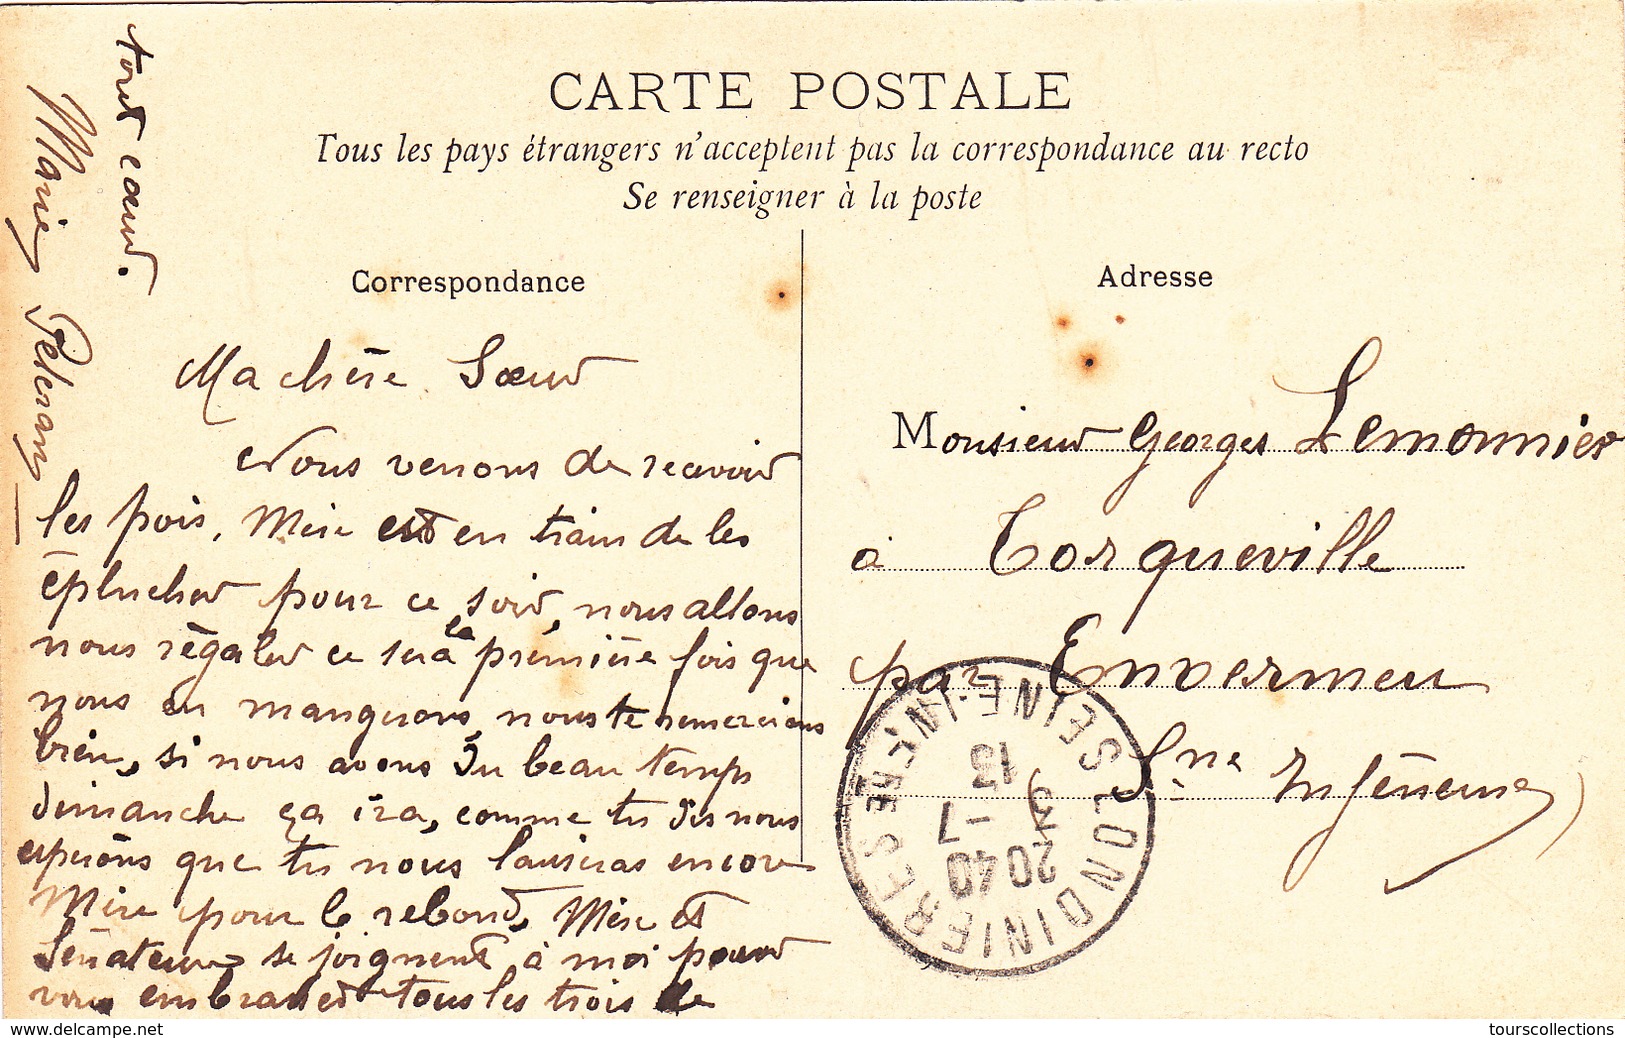 CARTE POSTALE
Tous les pays étrangers n'acceptent pas la correspondance au recto
Se renseigner à la poste
Correspondance
Ma chère Sœur
Nous venons de recevoir
les pois, Mère est en train de les
éplucher pour ce soir, nous allons
nous régaler ce sera la première fois que
nous en mangerons, nous te remercions
bien, si nous avons du beau temps
dimanche ça ira, comme tu dis nous
espérons que tu nous laisseras encore
Mère pour le rebond, Mère et
Sénateur se joignent à moi pour
vous embrasser tous les trois de
tout cœur.
Marie
Adresse
Monsieur Georges Lemonnier
à Torqueville
par Envermeu
Sne Inférieure
LONDINIERES SEINE-INFRE
20 40
7
13
delcampe.net
tourscollections